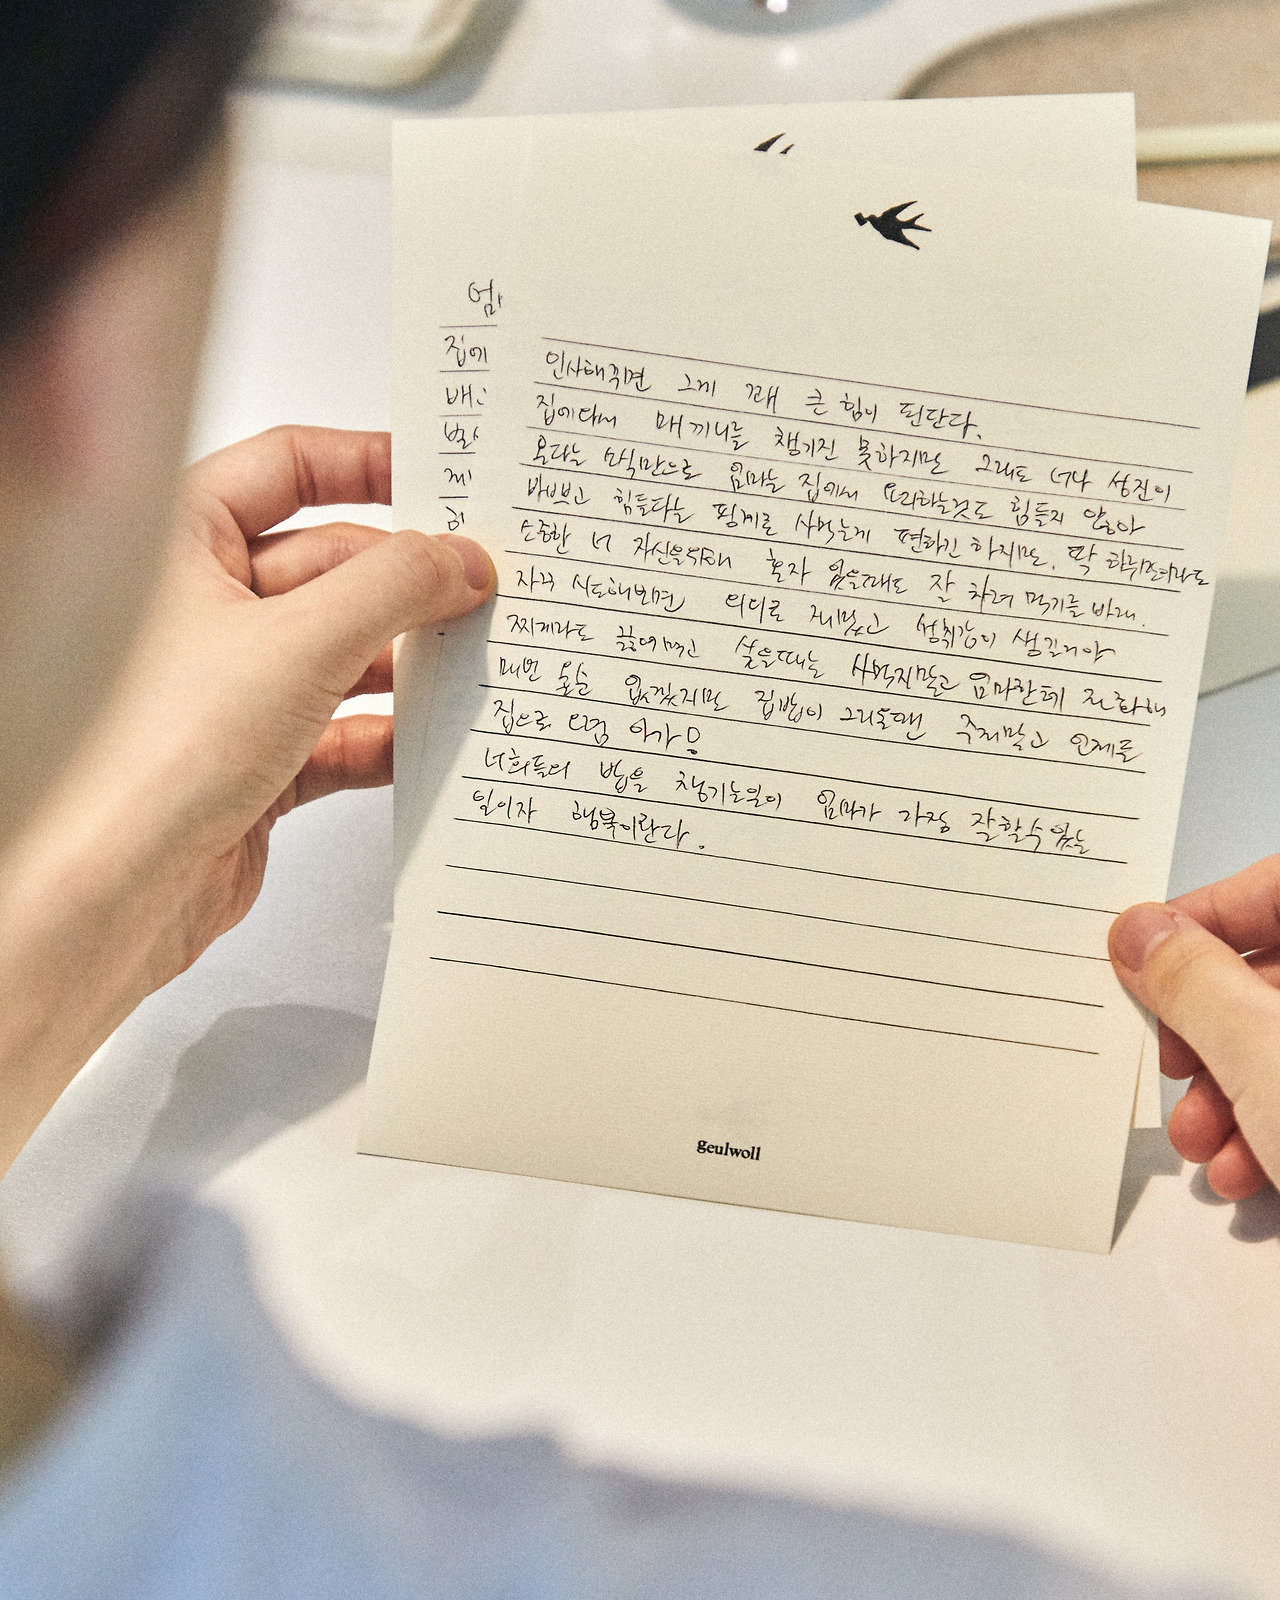 엄
집에
배
인사해주면 그게 꽤 큰 힘이 된단다.
집에와서 매 끼니를 챙기진 못하지만 그래도 너나 성진이
온다는 소식만으로 엄마는 집에서 요리하는것도 힘들지 않아
바쁘고 힘들다는 핑계로 사먹는게 편하긴 하지만, 딱 하루
소중한 너 자신을위해 혼자 있을때도 잘 차려 먹기를 바래.
자꾸 시도해보면 의외로 재밌고 성취감이 생길거야
찌개라도 끓여먹고 싶을때는 사먹지말고 엄마한테 전화해
매번 올순 없겠지만 집밥이 그리울땐 주저말고 언제든
집으로 오렴 아가!
너희들의 밥을 챙기는일이 엄마가 가장 잘할수있는
일이자 행복이란다.
geulwoll